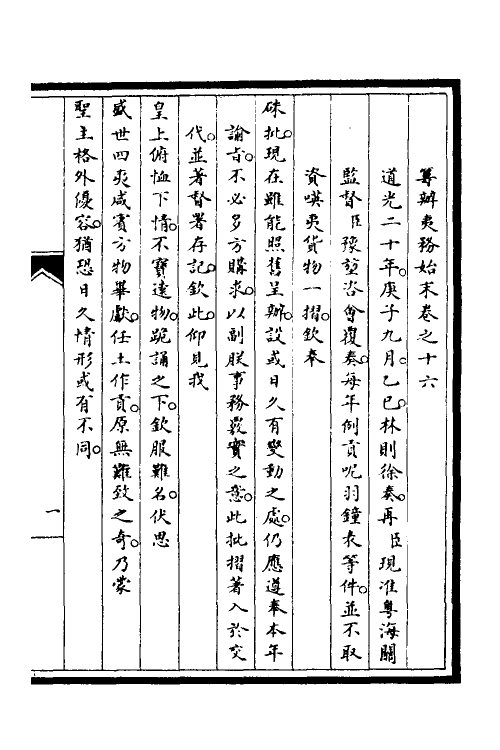 籌辦夷務始末卷之十六
道光二十年。庚子九月。乙巳。林則徐奏。再臣現准粵海關
監督臣豫堃咨會覆奏。每年例貢呢羽鐘表等件。並不取
資㗸夷貨物一摺。欽奉
硃批。現在雖能照舊呈辦。設或日久有變動之處。仍應遵奉本年
諭旨。不必多方購求。以副朕事務覈實之意。此批摺著入於交
代。並著督署存記。欽此。仰見我
皇上俯恤下情。不寶遠物。跪誦之下。欽服難名。伏思
盛世四夷咸賓。方物畢獻。任土作貢。原無難致之奇。乃蒙
聖主格外優容。猶恐日久情形或有不同。
一